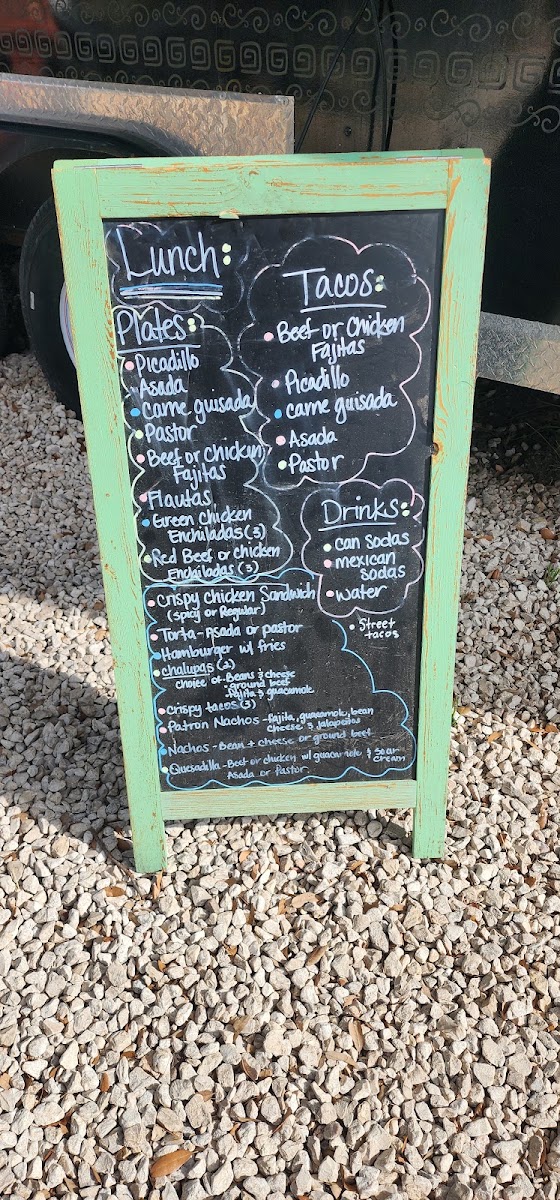 Lunch:
Plates:
• Picadillo
• Asada
• carne guisada
• Pastor
• Beef or chicken
Fajitas
• Flautas
• Green chicken
Enchiladas (3)
• Red Beef or chicken
Enchiladas (3)
Tacos:
• Beef or Chicken
Fajitas
• Picadillo
• carne guisada
• Asada
• Pastor
Drinks:
• can sodas
• mexican
sodas
• water
• Street
tacos
• crispy chicken Sandwich
(spicy or Regular)
• Torta - Asada or pastor
• Hamburger w/ fries
• chalupas (2)
choice of - Beans & cheese
- ground beef
- Fajita & guacamole
• crispy tacos (3)
• Patron Nachos - Fajita, guacamole, bean
cheese & jalapeños
• Nachos - Bean + cheese or ground beef
• Quesadilla - Beef or chicken w/ guacamole & Sour
cream
Asada or Pastor